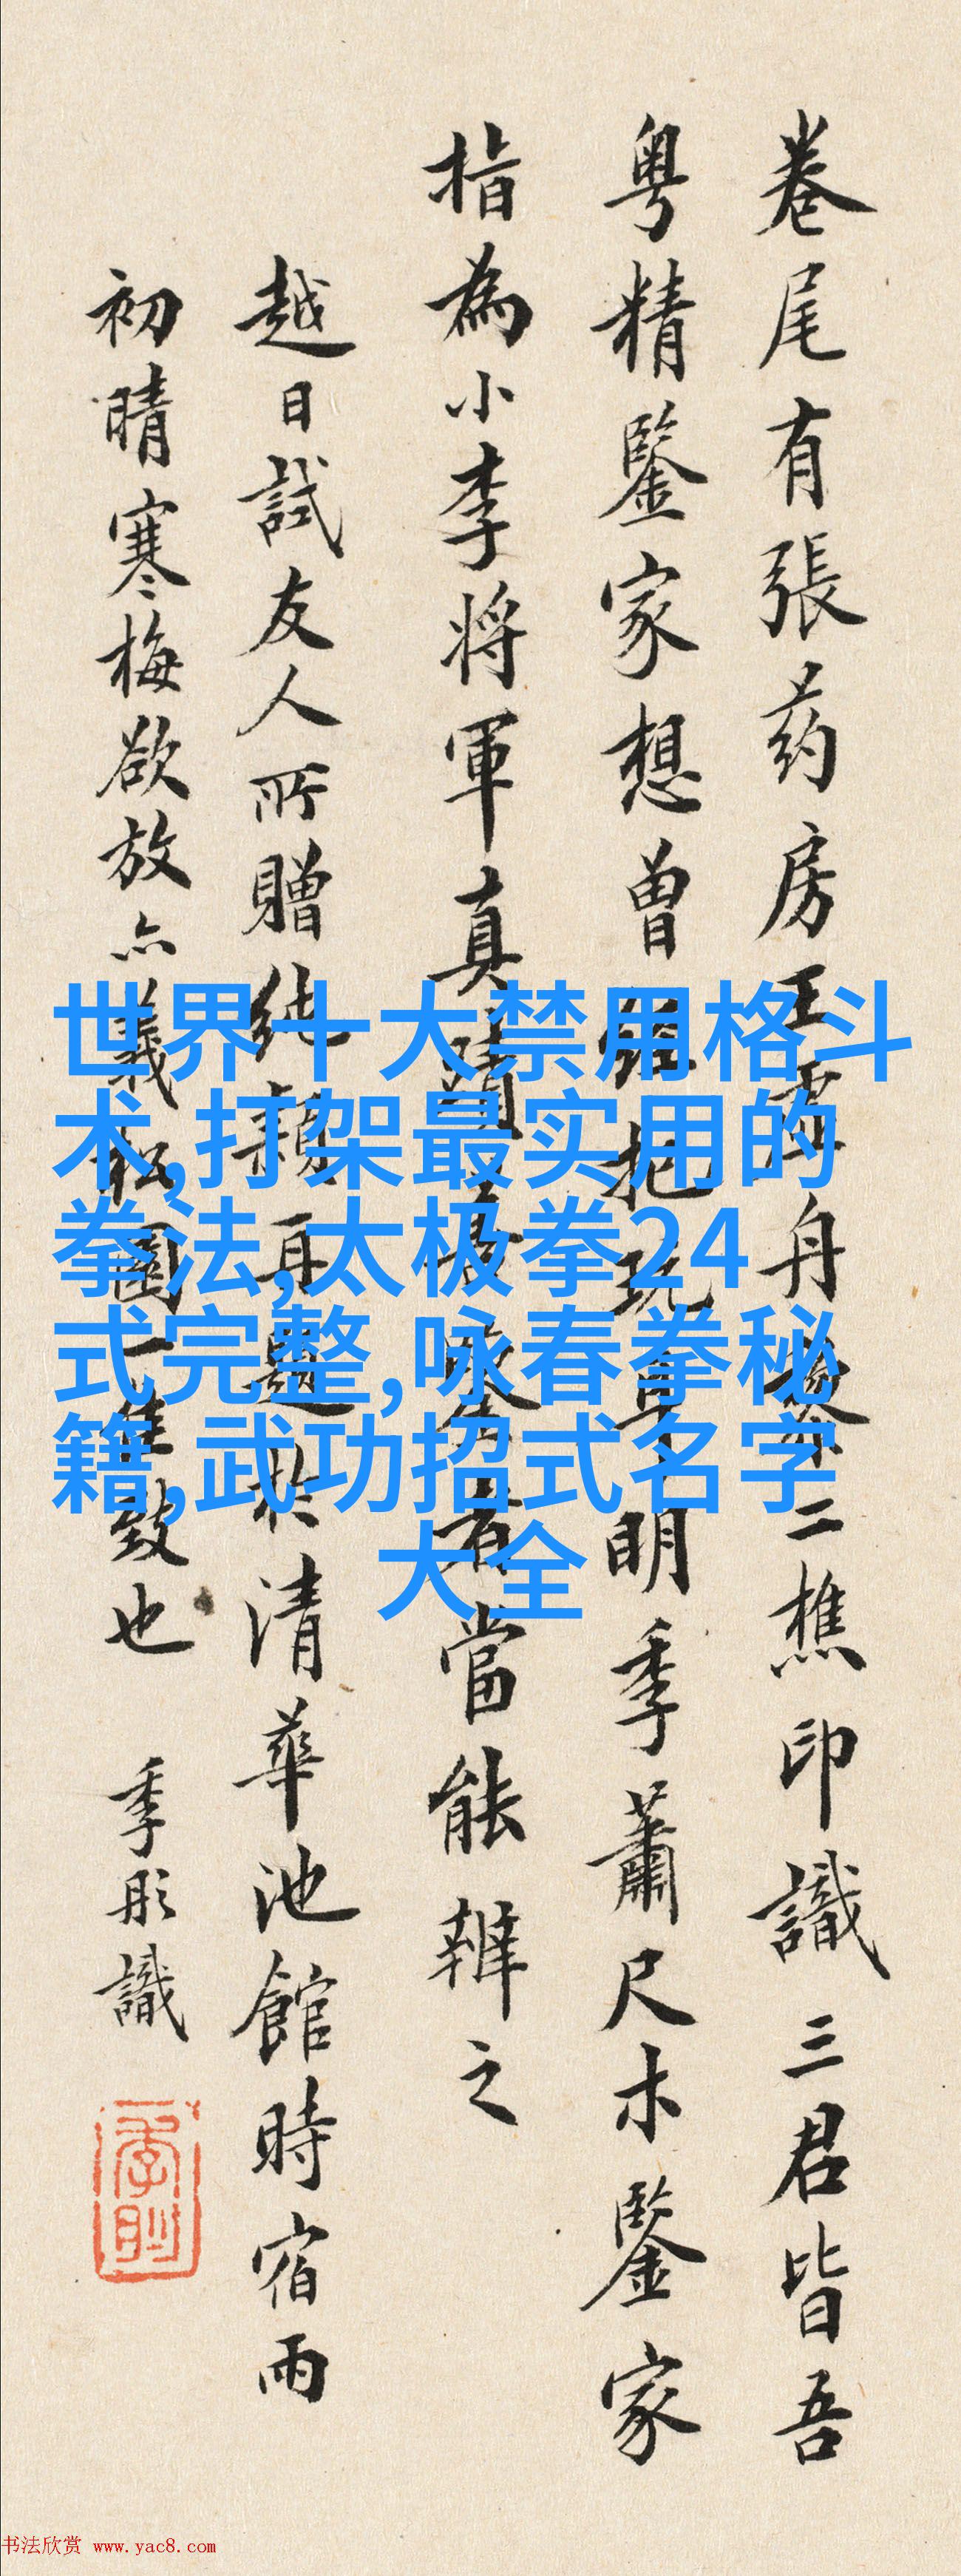 卷尾有張药房王雪舟黎二樵印識三君皆吾
粤精鑒家想曾經把玩耳明季蕭尺木鑒家
指為小李将軍真蹟善鑒者當能辨之
越日試友人所贈純穎再題於清華池館時宿雨
初晴寒梅欲放亦羲松園一佳致也
季彤識
世界十大禁用格斗
术,打架最实用的
拳法,太极拳24
式完整,咏春拳秘
籍,武功招式名字
大全
书法欣赏 www.yac8.com